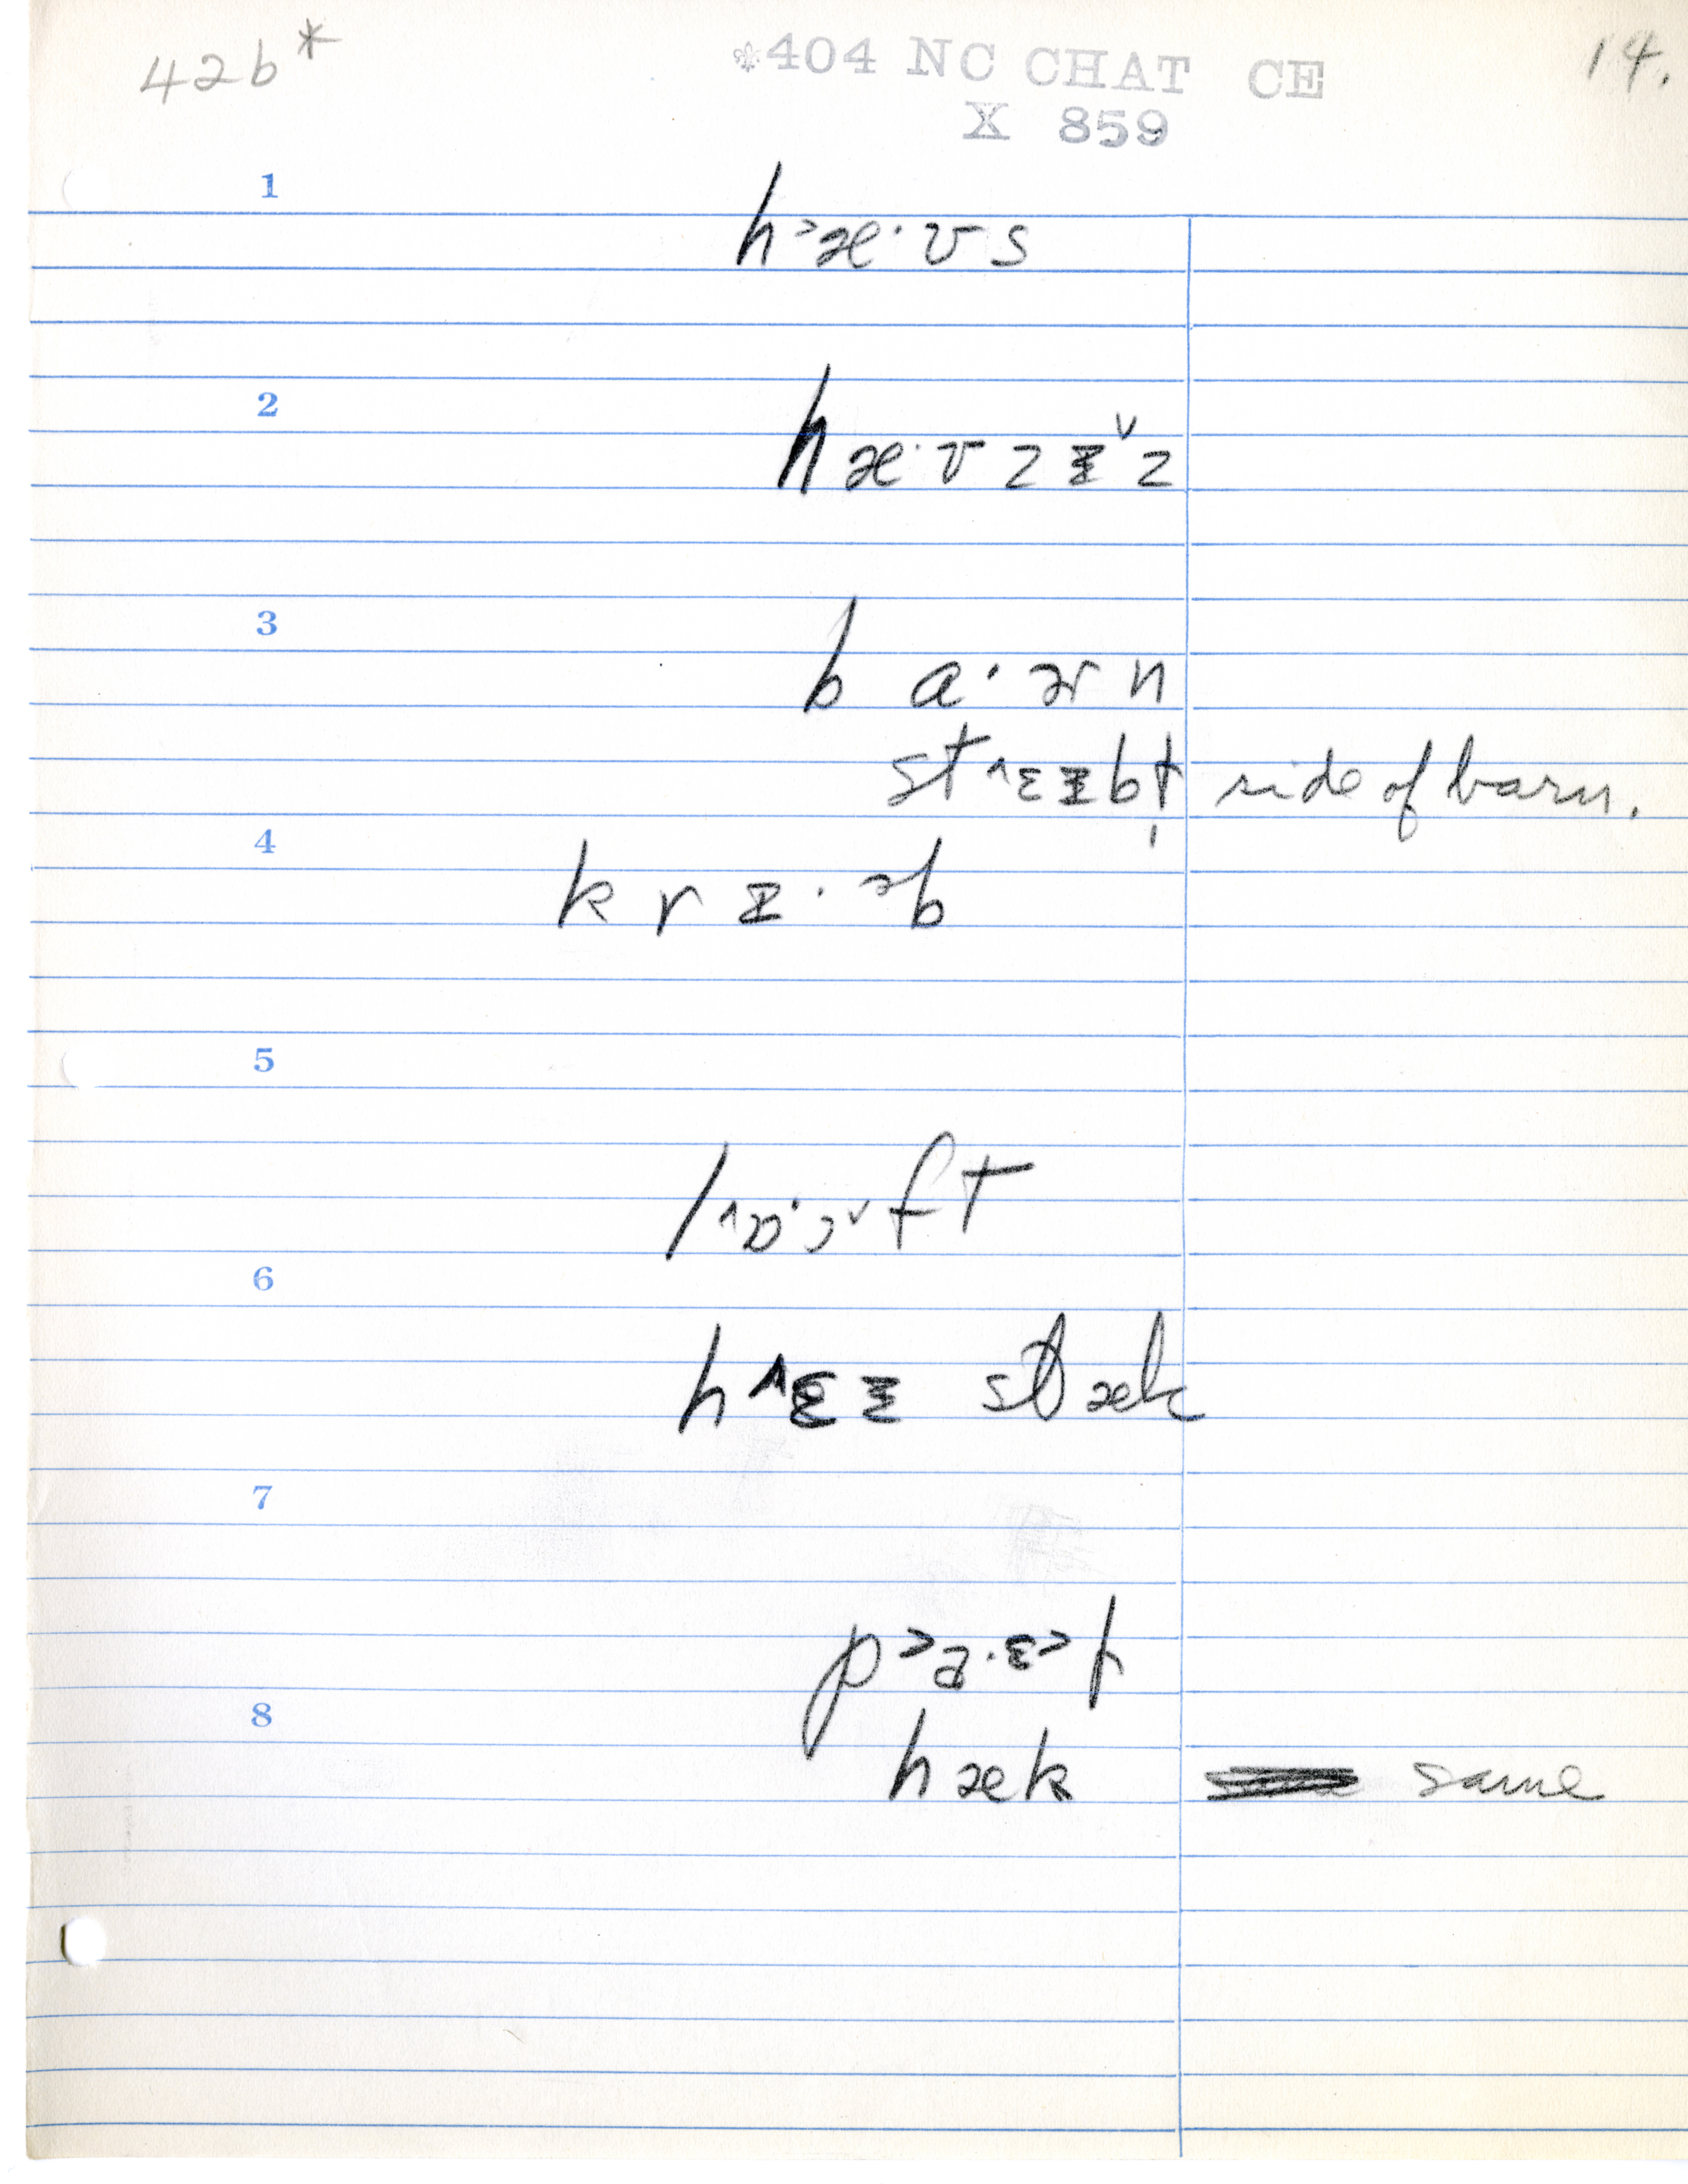 42b* *404 NC CHAT CE 14.
X 859
1
h˃æ·vs
2
hæ·vzɪ˅z
3
ba·ɚn
st˄ɛɪbɫ̩ side of barn.
4
krɪ·əb
5
l˄ɒ·ɔ˅ft
6
h˄ɛɪ stæk
7
8
hæk same